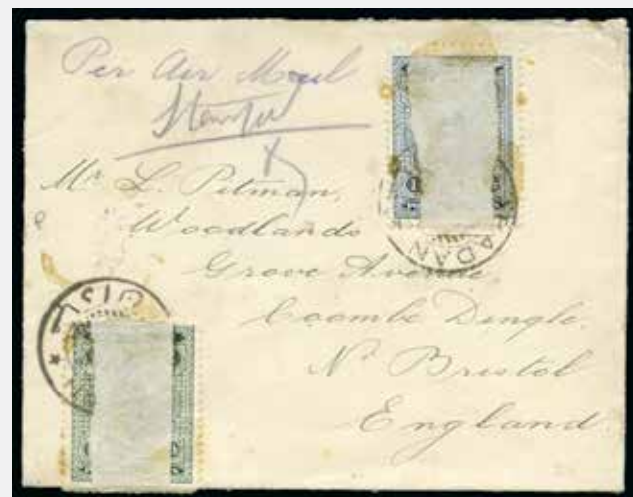 Per Air Mail
Mr. L. Pitman,
Woodlands
Grove Avenue,
Coombe Dingle,
Nr Bristol
England
ABADAN